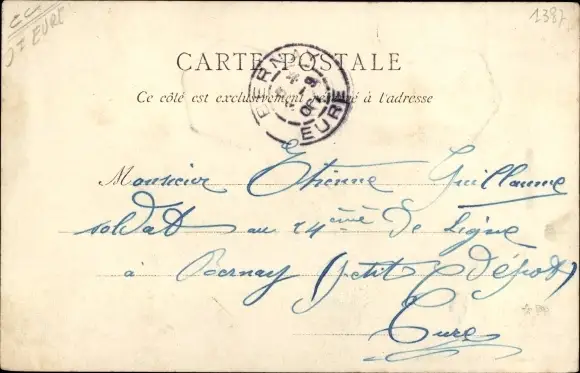 1387
Jt EURE
CARTE POSTALE
Ce côté est exclusivement réservé à l'adresse
BERNAY
EURE
Monsieur Etienne Guillaume
soldat au 24ème de Ligne
à Bernay (petit dépot)
Eure